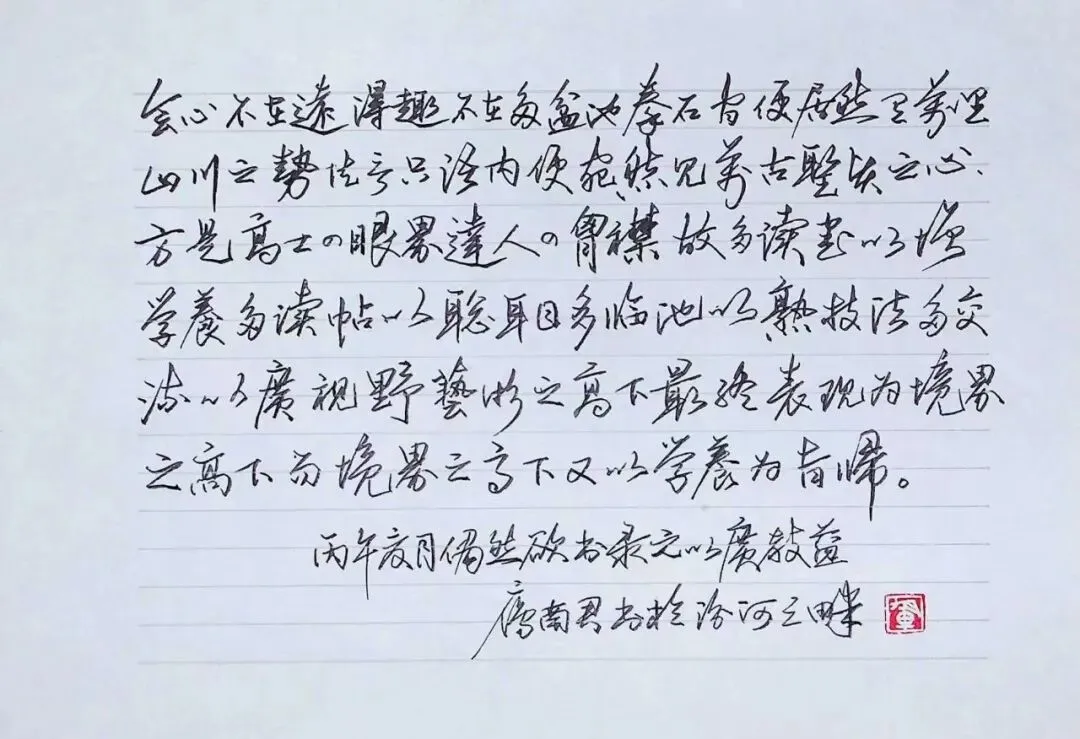 会心不在遠得趣不在多盆池拳石间便居然有万里
山川之勢片言只语内便宛然见万古聖贤之心
方是高士的眼界達人的胷襟故多读书以增
学養多读帖以聪耳目多临池以熟技法多交
流以广視野藝術之高下最终表现为境界
之高下而境界之高下又以学養为旨歸。
丙午 月偶然欲书录之以廣教益
南君书於汾河之畔